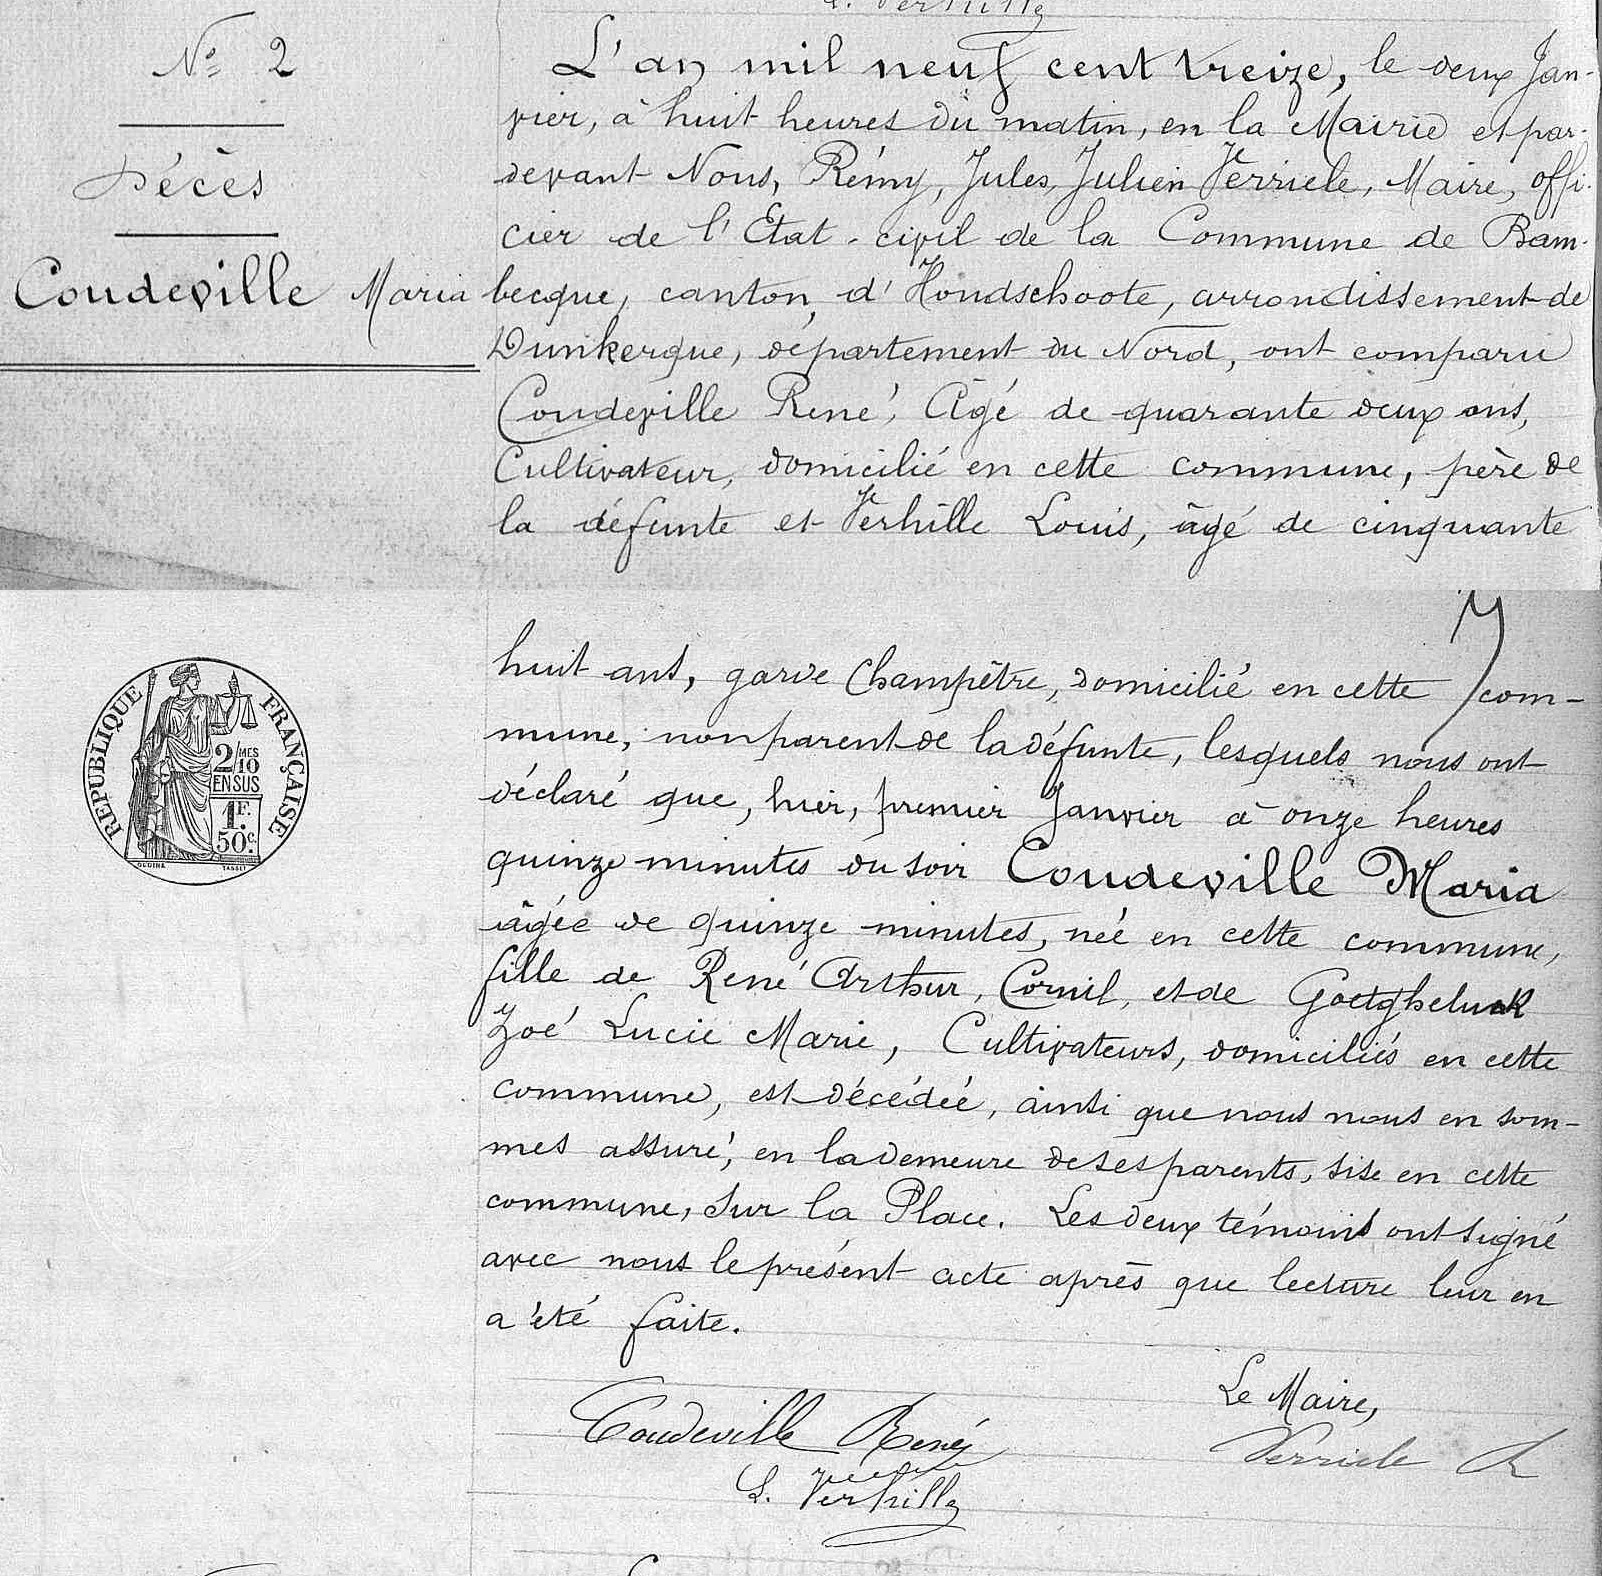 L. Verhille
Nº 2
Décès
Coudeville Maria
L'an mil neuf cent treize, le deux Jan-
vier, à huit heures du matin, en la Mairie et par-
devant Nous, Rémy, Jules, Julien Verriele, Maire, offi-
cier de l'Etat-civil de la Commune de Bam-
becque, canton d'Hondschoote, arrondissement de
Dunkerque, département du Nord, ont comparu
Coudeville René, Agé de quarante deux ans,
Cultivateur, domicilié en cette commune, père de
la défunte et Verhille Louis, âgé de cinquante
7
huit ans, garde Champêtre, domicilié en cette com-
mune, non parent de la défunte, lesquels nous ont
déclaré que, hier, premier Janvier à onze heures
quinze minutes du soir Coudeville Maria
âgée de quinze minutes, née en cette commune,
fille de René Arthur, Cornil, et de Goetgheluck
Zoé Lucie Marie, Cultivateurs, domiciliés en cette
commune, est décédée, ainsi que nous nous en som-
mes assuré, en la demeure de ses parents, sise en cette
commune, sur la Place. Les deux témoins ont signé
avec nous le présent acte après que lecture leur en
a été faite.
Le Maire,
Coudeville René
Verriele R
L. Verhille
RÉPUBLIQUE FRANÇAISE
2/10 MES
EN SUS
1F.
50c.
OUDINÉ TASSET